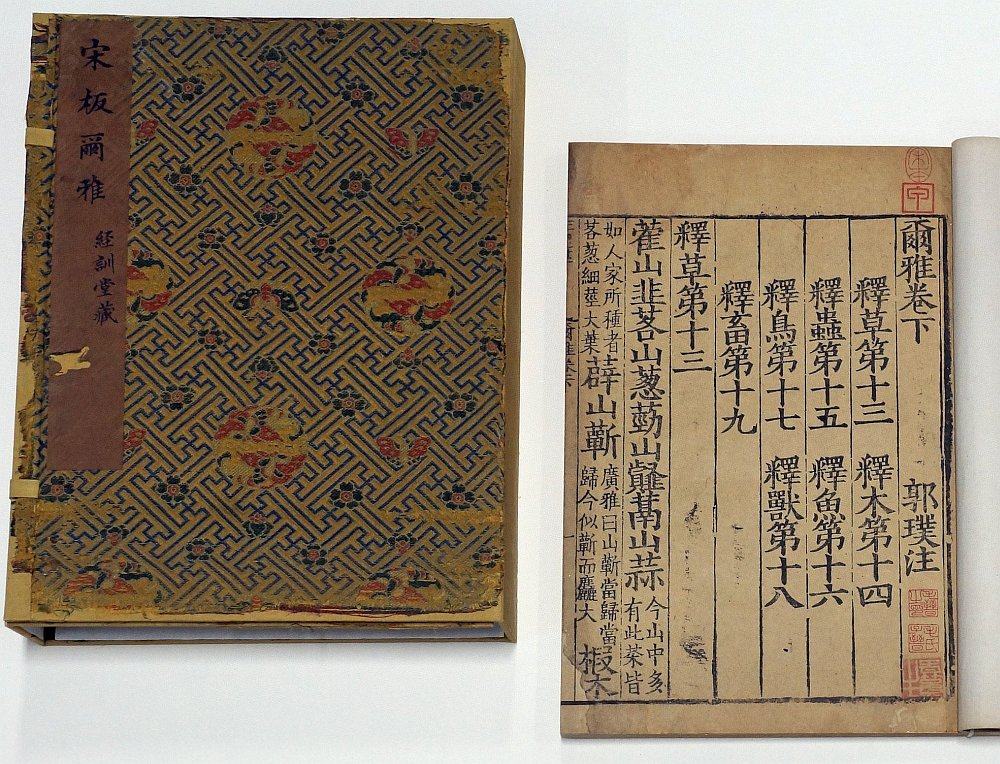 宋板爾雅 経訓堂藏
爾雅卷下 郭璞注
釋草第十三 釋木第十四
釋蟲第十五 釋魚第十六
釋鳥第十七 釋獸第十八
釋畜第十九
釋草第十三
藿山韭茖山葱葝山䪥蒚山蒜 今山中多有此菜皆
如人家所種者茖葱細莖大葉 薜山蘄 廣雅曰山蘄當歸當歸今似蘄而麤大 椴木